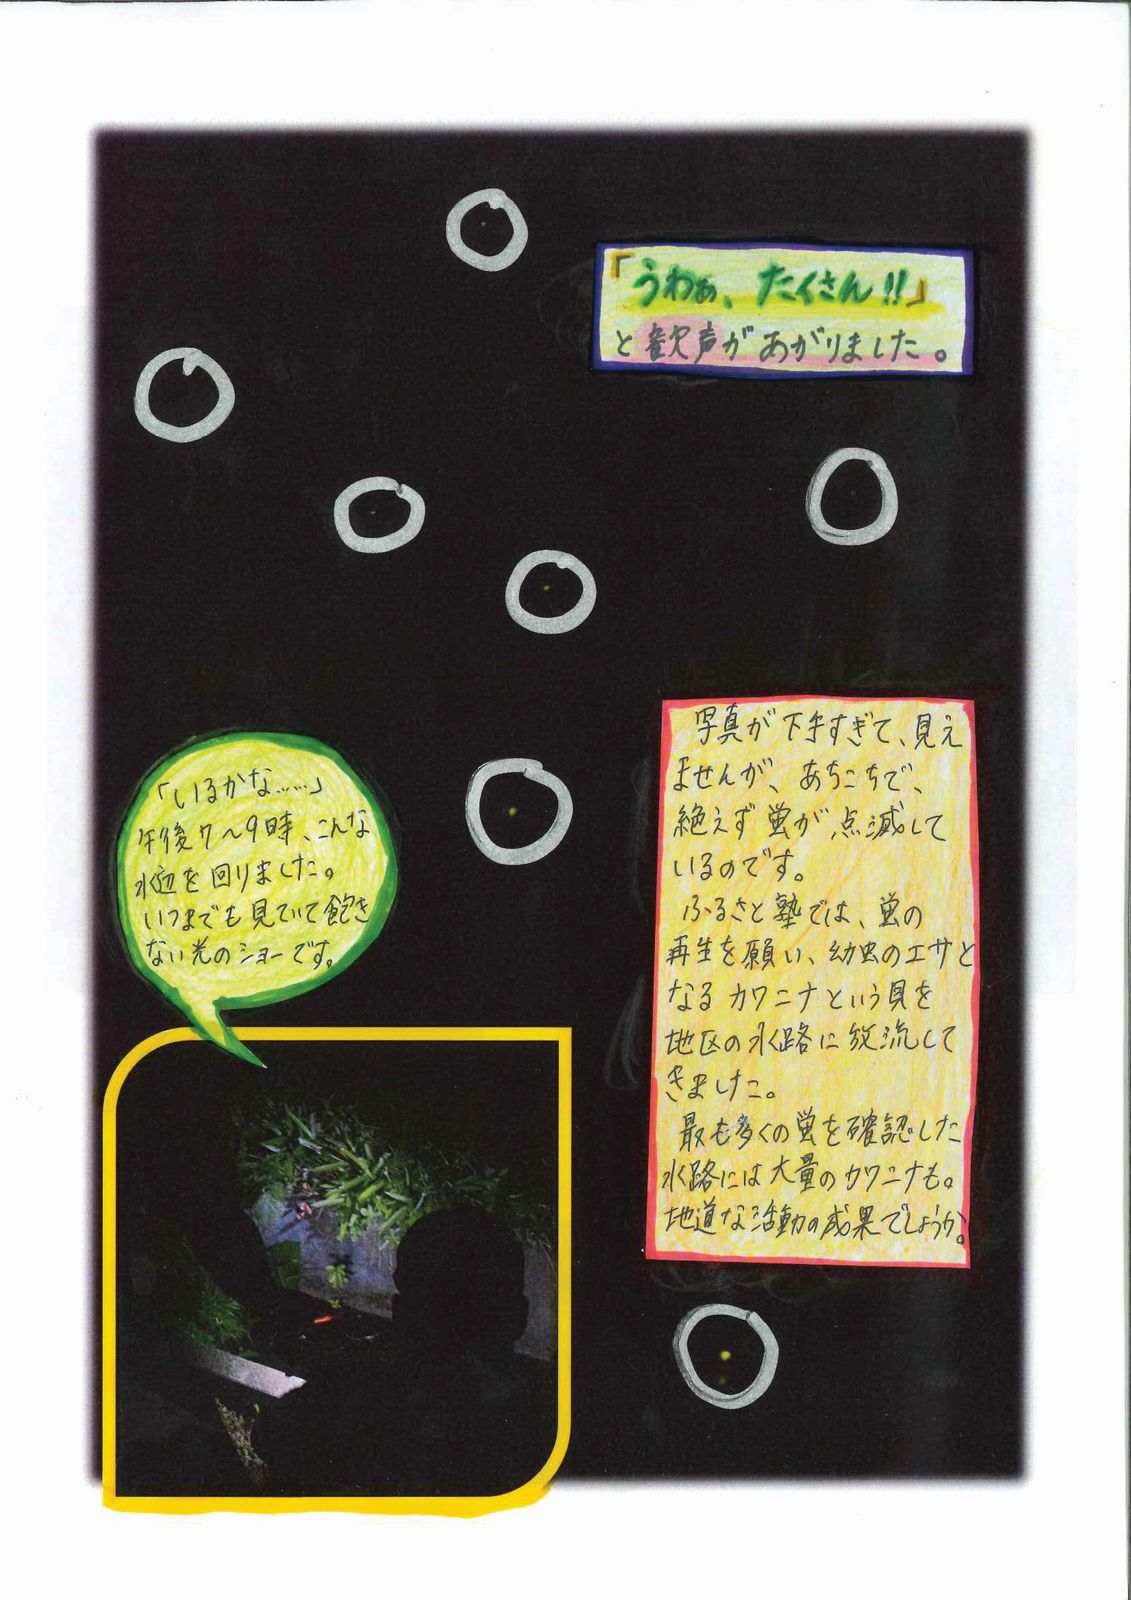 「うわぁ、たくさん!!」
と歓声があがりました。
写真が下手すぎて、見え
ませんが、あちこちで、
絶えず蛍が点滅して
いるのです。
ふるさと塾では、蛍の
再生を願い、幼虫のエサと
なるカワニナという貝を
地区の水路に放流して
きました。
最も多くの蛍を確認した
水路には大量のカワニナも。
地道な活動の成果でしょうか。
「いるかな……」
午後7〜9時、こんな
水辺を回りました。
いつまでも見ていて飽き
ない光のショーです。